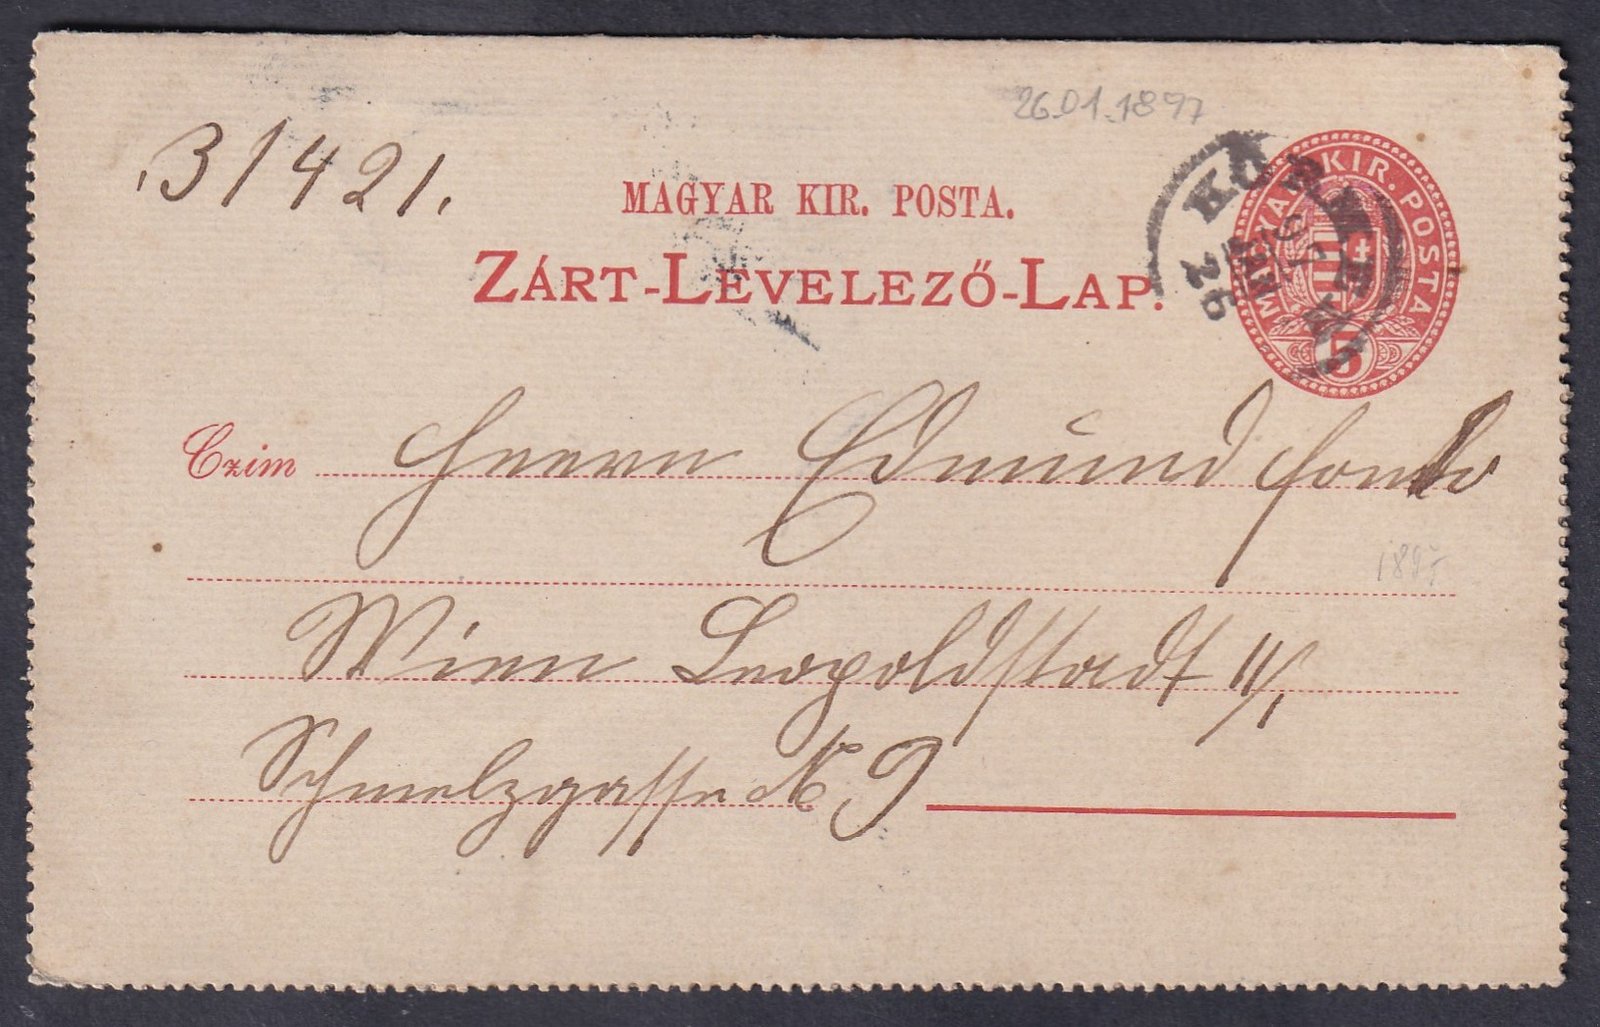 26.01.1897
31421.
MAGYAR KIR. POSTA.
ZÁRT-LEVELEZŐ-LAP.
MAGYAR KIR. POSTA
5
26
Czim Herrn Edmund
1897
Wien Leopoldstadt II/1
Schmelzgasse No 9